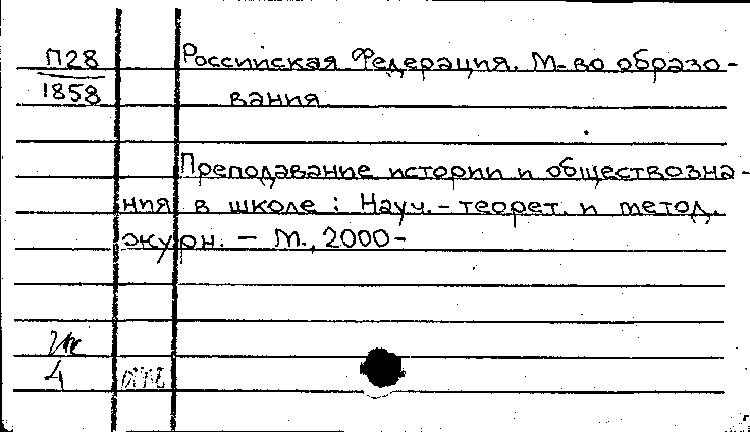 П28 Российская Федерация. М-во образо-
1858 вания
Преподавание истории и обществозна-
ния в школе : Науч.-теорет. и метод.
журн. — М., 2000-
4